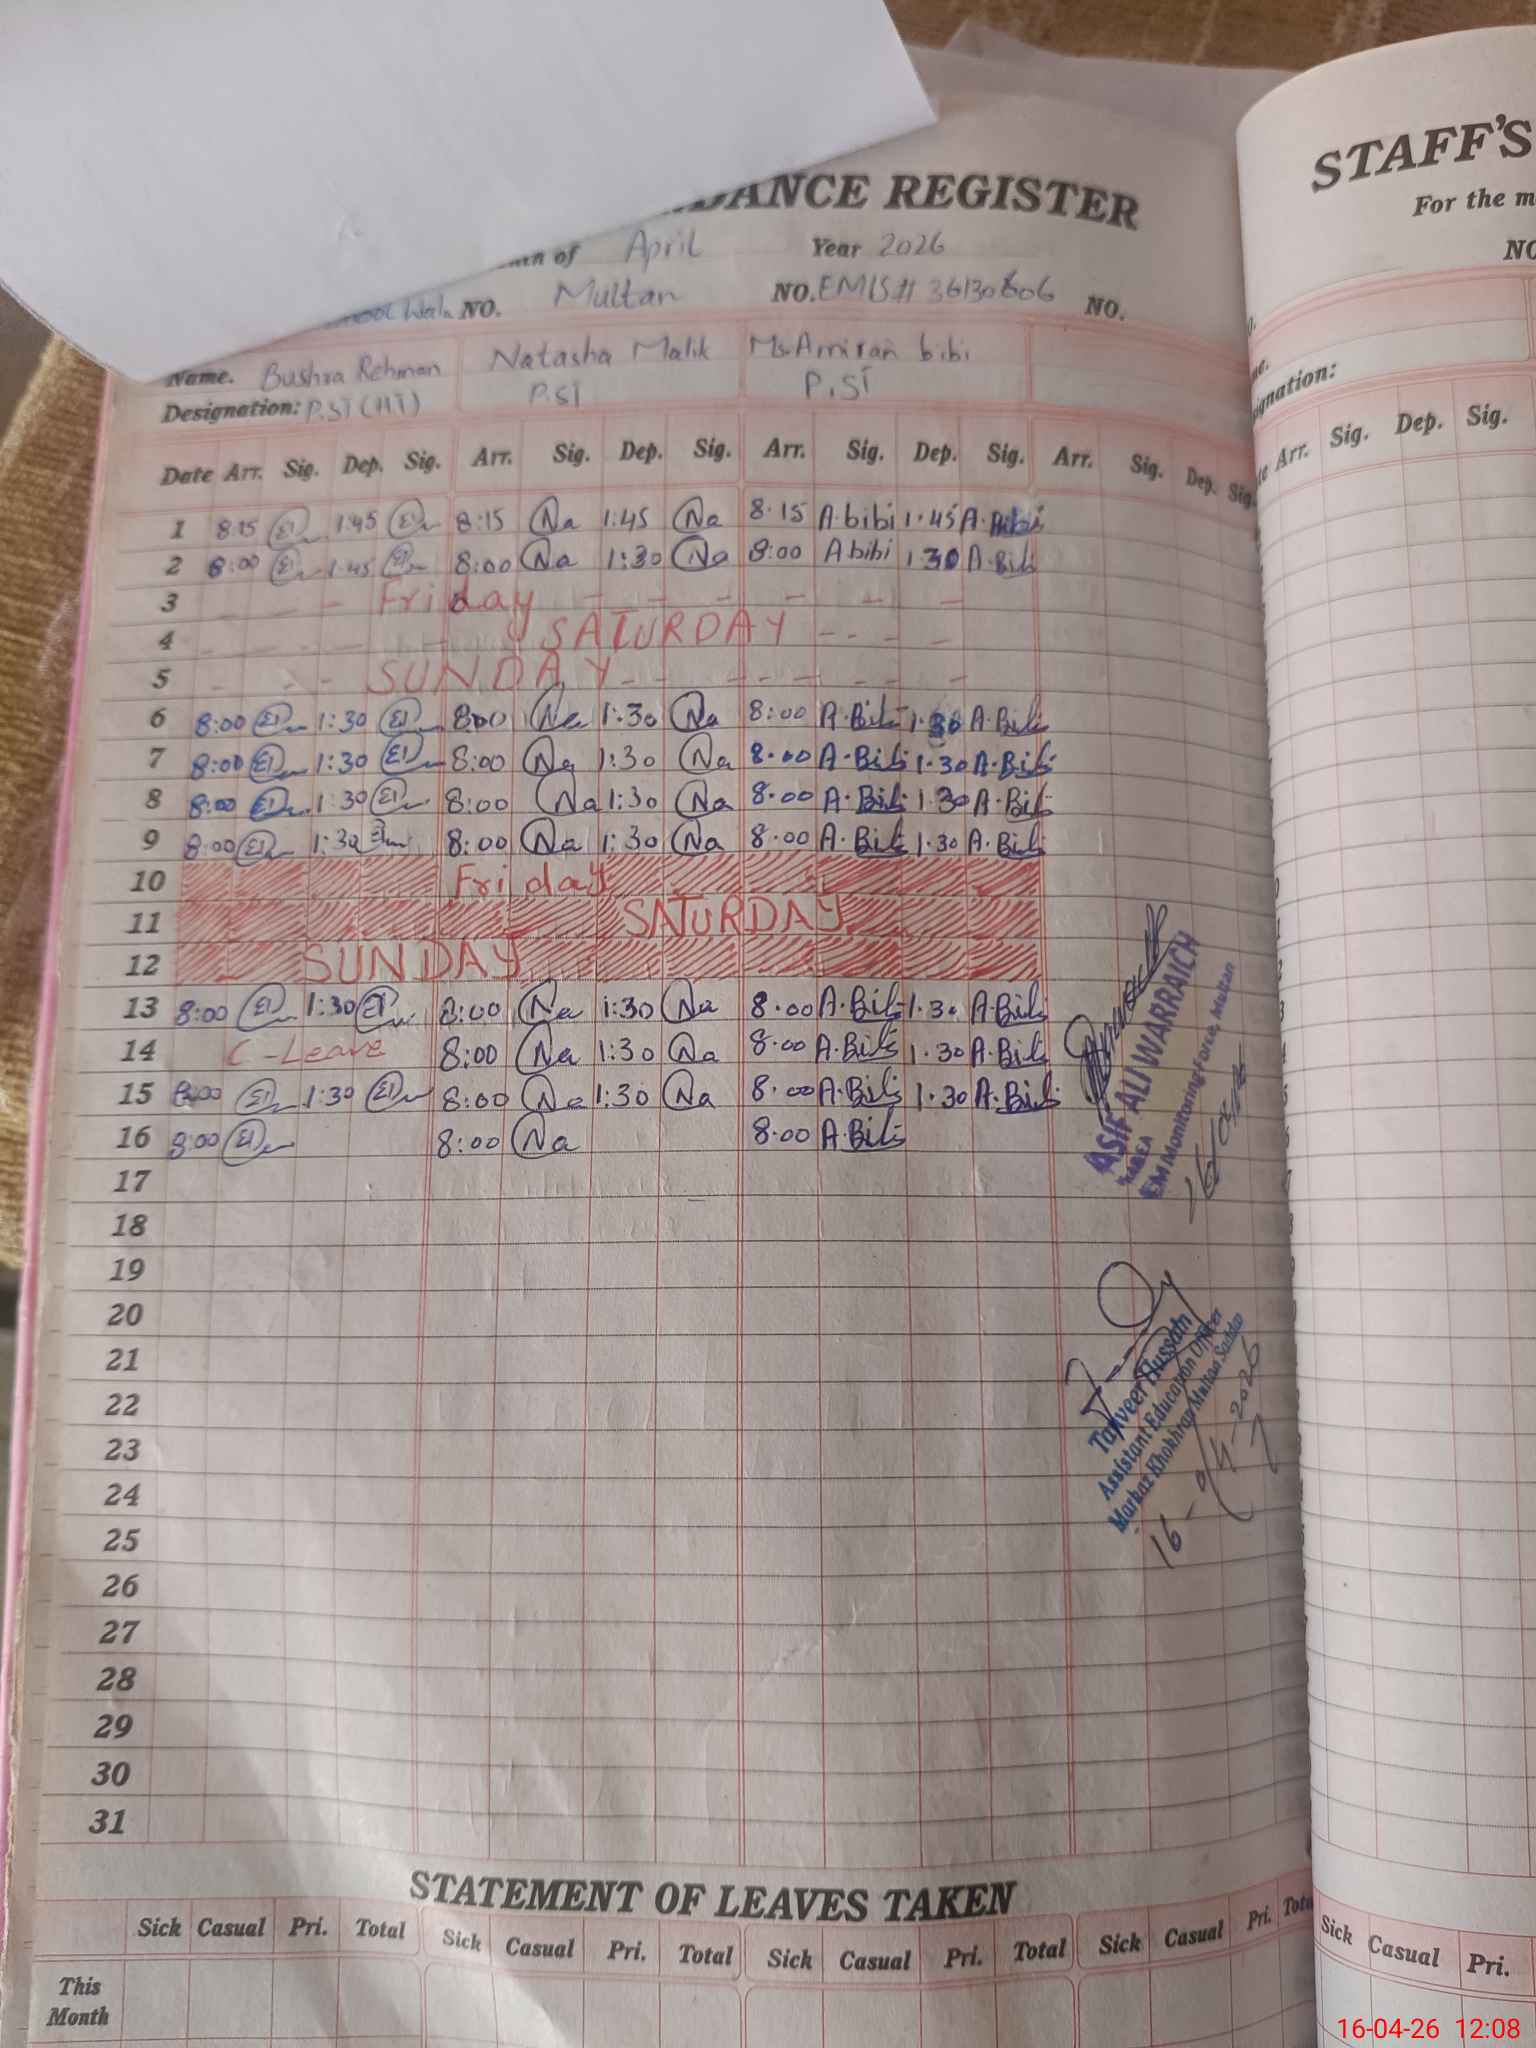 DANCE REGISTER
of April Year 2026
Wala NO. Multan NO. EMIS# 36130606 NO.
Name. Bushra Rehman Natasha Malik Ms. Amiran bibi
Designation: P.ST (HT) P.ST P.ST
Date Arr. Sig. Dep. Sig. Arr. Sig. Dep. Sig. Arr. Sig. Dep. Sig. Arr. Sig. Dep. Sig.
1 8:15 1:45 8:15 Na 1:45 Na 8:15 A.bibi 1.45 A.Bibi
2 8:00 1:45 8:00 Na 1:30 Na 8:00 A bibi 1.30 A.Bibi
3 Friday
4 SATURDAY
5 SUNDAY
6 8:00 1:30 8:00 Na 1:30 Na 8:00 A.Bibi 1.30 A.Bibi
7 8:00 1:30 8:00 Na 1:30 Na 8.00 A.Bibi 1.30 A.Bibi
8 8:00 1:30 8:00 Na 1:30 Na 8.00 A.Bibi 1.30 A.Bibi
9 8:00 1:30 8:00 Na 1:30 Na 8.00 A.Bibi 1.30 A.Bibi
10 Friday
11 SATURDAY
12 SUNDAY
13 8:00 1:30 8:00 Na 1:30 Na 8.00 A.Bibi 1.30 A.Bibi
14 C-Leave 8:00 Na 1:30 Na 8.00 A.Bibi 1.30 A.Bibi
15 8:00 1:30 8:00 Na 1:30 Na 8.00 A.Bibi 1.30 A.Bibi
16 8:00 8:00 Na 8.00 A.Bibi
17
18
19
20
21
22
23
24
25
26
27
28
29
30
31
ASIF ALI WARRAICH
MEA
EM Monitoring Force, Multan
Tanveer Hussain
Assistant Education Officer
Markaz Khokhran Multan Saddar
16-04-2026
STATEMENT OF LEAVES TAKEN
Sick Casual Pri. Total Sick Casual Pri. Total Sick Casual Pri. Total Sick Casual Pri. Total
This
Month
STAFF'S
For the m
NO
Designation:
Arr. Sig. Dep. Sig.
Sick Casual Pri.
16-04-26 12:08